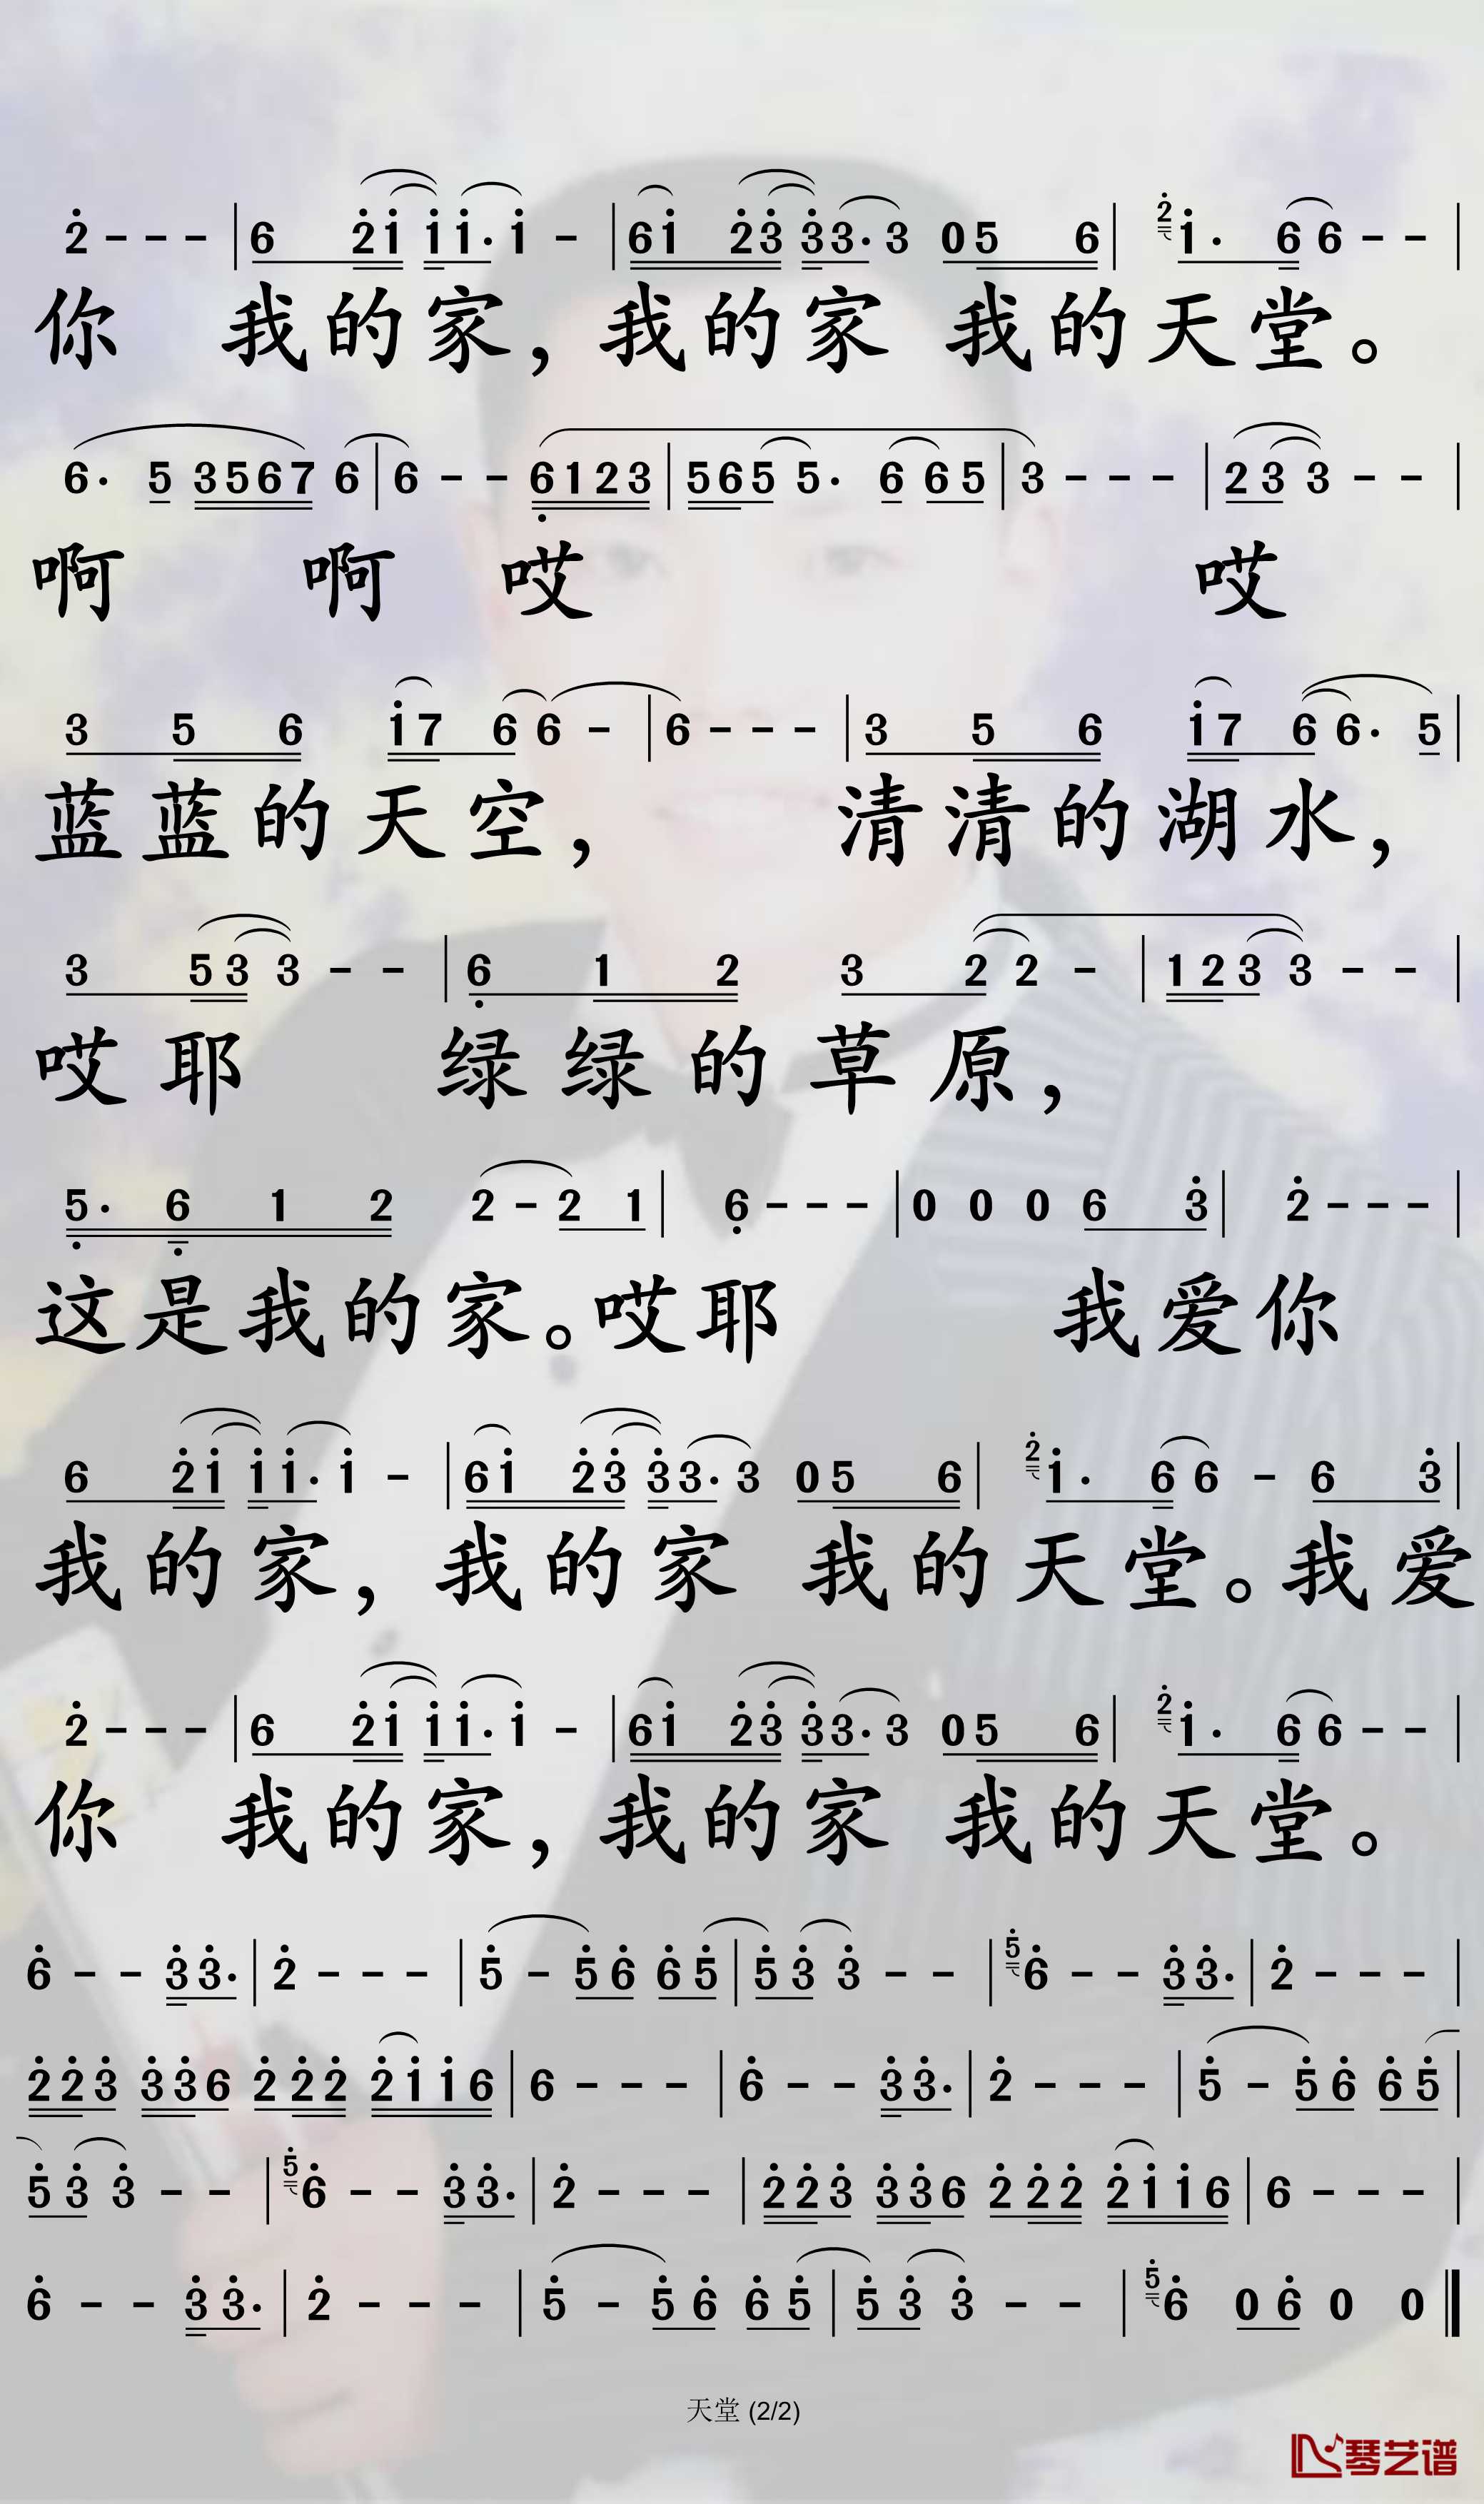 2̇ - - - | 6 2̇ 1̇ 1̇ 1̇· 1̇ - | 6 1̇ 2̇ 3̇ 3̇ 3· 3 0 5 6 | 2̇ 1̇· 6 6 - - |
你 我的家，我的家 我的天堂。
6· 5 3 5 6 7 6 | 6 - - 6̣ 1 2 3 | 5 6 5 5· 6 6 5 | 3 - - - | 2 3 3 - - |
啊 啊 哎 哎
3 5 6 1̇ 7 6 6 - | 6 - - - | 3 5 6 1̇ 7 6 6· 5 |
蓝蓝的天空， 清清的湖水，
3 5 3 3 - - | 6̣ 1 2 3 2 2 - | 1 2 3 3 - - |
哎耶 绿绿的草原，
5̣· 6̣ 1 2 2 - 2 1 | 6̣ - - - | 0 0 0 6 3̇ | 2̇ - - - |
这是我的家。哎耶 我爱你
6 2̇ 1̇ 1̇ 1̇· 1̇ - | 6 1̇ 2̇ 3̇ 3̇ 3· 3 0 5 6 | 2̇ 1̇· 6 6 - 6 3̇ |
我的家，我的家 我的天堂。我爱
2̇ - - - | 6 2̇ 1̇ 1̇ 1̇· 1̇ - | 6 1̇ 2̇ 3̇ 3̇ 3· 3 0 5 6 | 2̇ 1̇· 6 6 - - |
你 我的家，我的家 我的天堂。
6̇ - - 3̇ 3̇· | 2̇ - - - | 5̇ - 5̇ 6̇ 6̇ 5̇ | 5̇ 3̇ 3̇ - - | 5̇ 6̇ - - 3̇ 3̇· | 2̇ - - - |
2̇ 2̇ 3̇ 3̇ 3̇ 6 2̇ 2̇ 2̇ 2̇ 1̇ 1̇ 6 | 6 - - - | 6̇ - - 3̇ 3̇· | 2̇ - - - | 5̇ - 5̇ 6̇ 6̇ 5̇ |
5̇ 3̇ 3̇ - - | 5̇ 6̇ - - 3̇ 3̇· | 2̇ - - - | 2̇ 2̇ 3̇ 3̇ 3̇ 6 2̇ 2̇ 2̇ 2̇ 1̇ 1̇ 6 | 6 - - - |
6̇ - - 3̇ 3̇· | 2̇ - - - | 5̇ - 5̇ 6̇ 6̇ 5̇ | 5̇ 3̇ 3̇ - - | 5̇ 6̇ 0 6̇ 0 0 ‖
天堂 (2/2)
琴艺谱